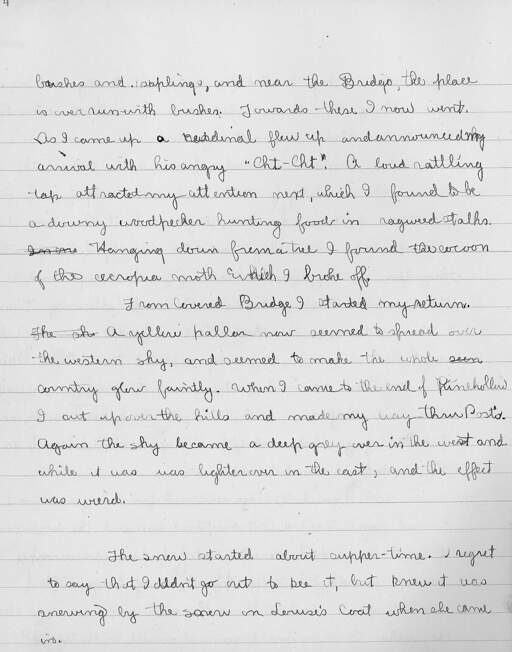 4
bushes and saplings, and near the Bridge, the place
is overrun with bushes. Towards these I now went.
As I came up a cardinal flew up and announced my
arrival with his angry "Cht-Cht". A loud rattling
tap attracted my attention next, which I found to be
a downy woodpecker hunting food in ragweed stalks.
Hanging down from a tree I found the cocoon
of the cecropia moth which I broke off.
From Covered Bridge I started my return.
The A yellow pallor now seemed to spread over
the western sky, and seemed to make the whole
country glow faintly. When I came to the end of Pinehollow
I cut up over the hills and made my way thru Post's.
Again the sky became a deep grey over in the west and
while it was was lighter over in the east, and the effect
was weird.
The snow started about supper-time. I regret
to say that I didn't go out to see it, but knew it was
snowing by the snow on Louise's coat when she came
in.